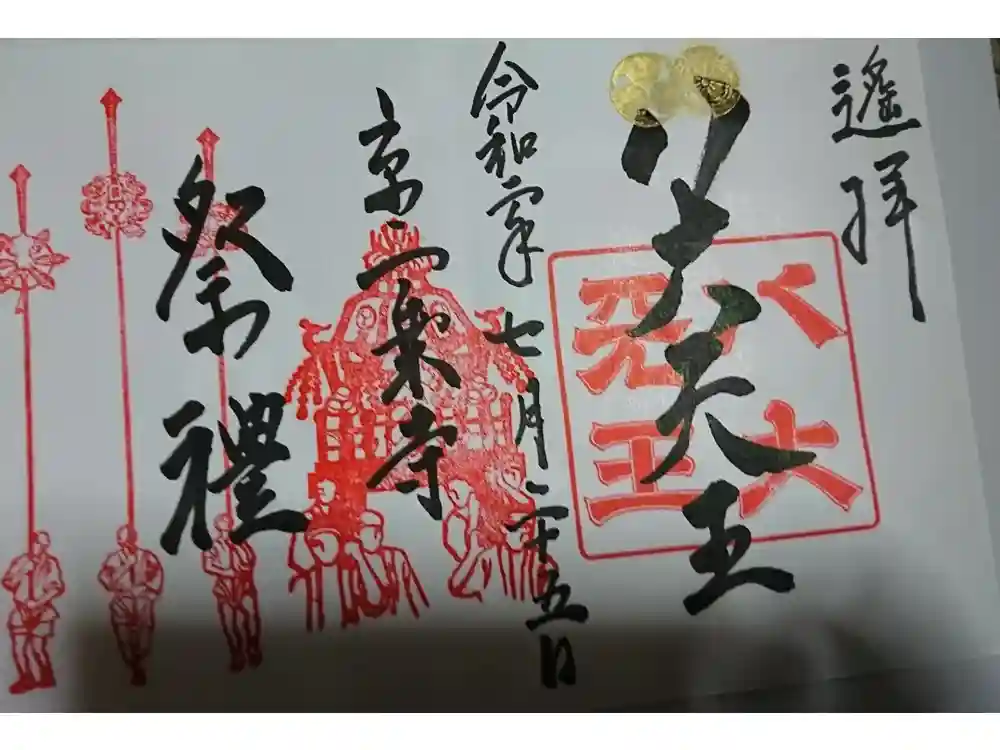 遙拝
八大天王
八大天王
令和二年七月二十五日
京一乗寺
祭禮